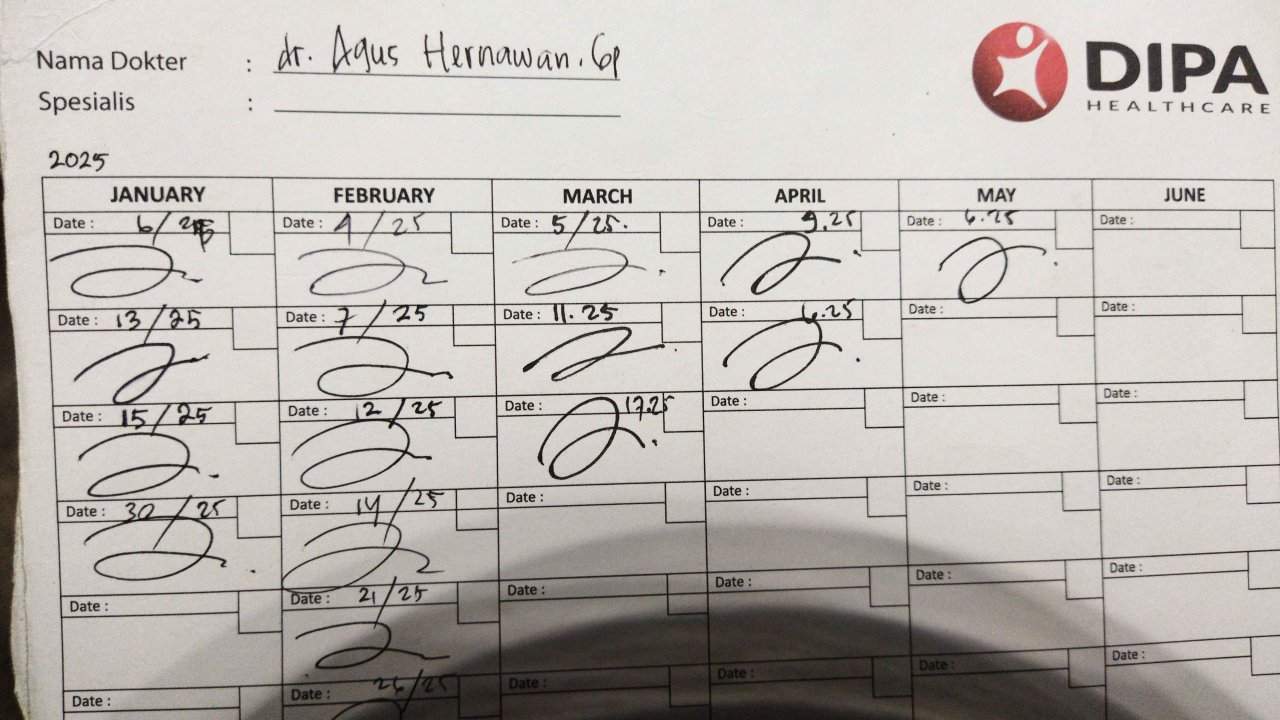 Nama Dokter : dr. Agus Hernawan. Gp
Spesialis :
DIPA
HEALTHCARE
2025
JANUARY FEBRUARY MARCH APRIL MAY JUNE
Date : 6 / 25 Date : 4 / 25 Date : 5 / 25. Date : 9.25 Date : 6.25 Date :
Date : 13 / 25 Date : 7 / 25 Date : 11. 25 Date : 6.25 Date : Date :
Date : 15 / 25 Date : 12 / 25 Date : 17.25 Date : Date : Date :
Date : 30 / 25 Date : 14 / 25 Date : Date : Date : Date :
Date : Date : 21 / 25 Date : Date : Date : Date :
Date : Date : 26/25 Date : Date : Date : Date :